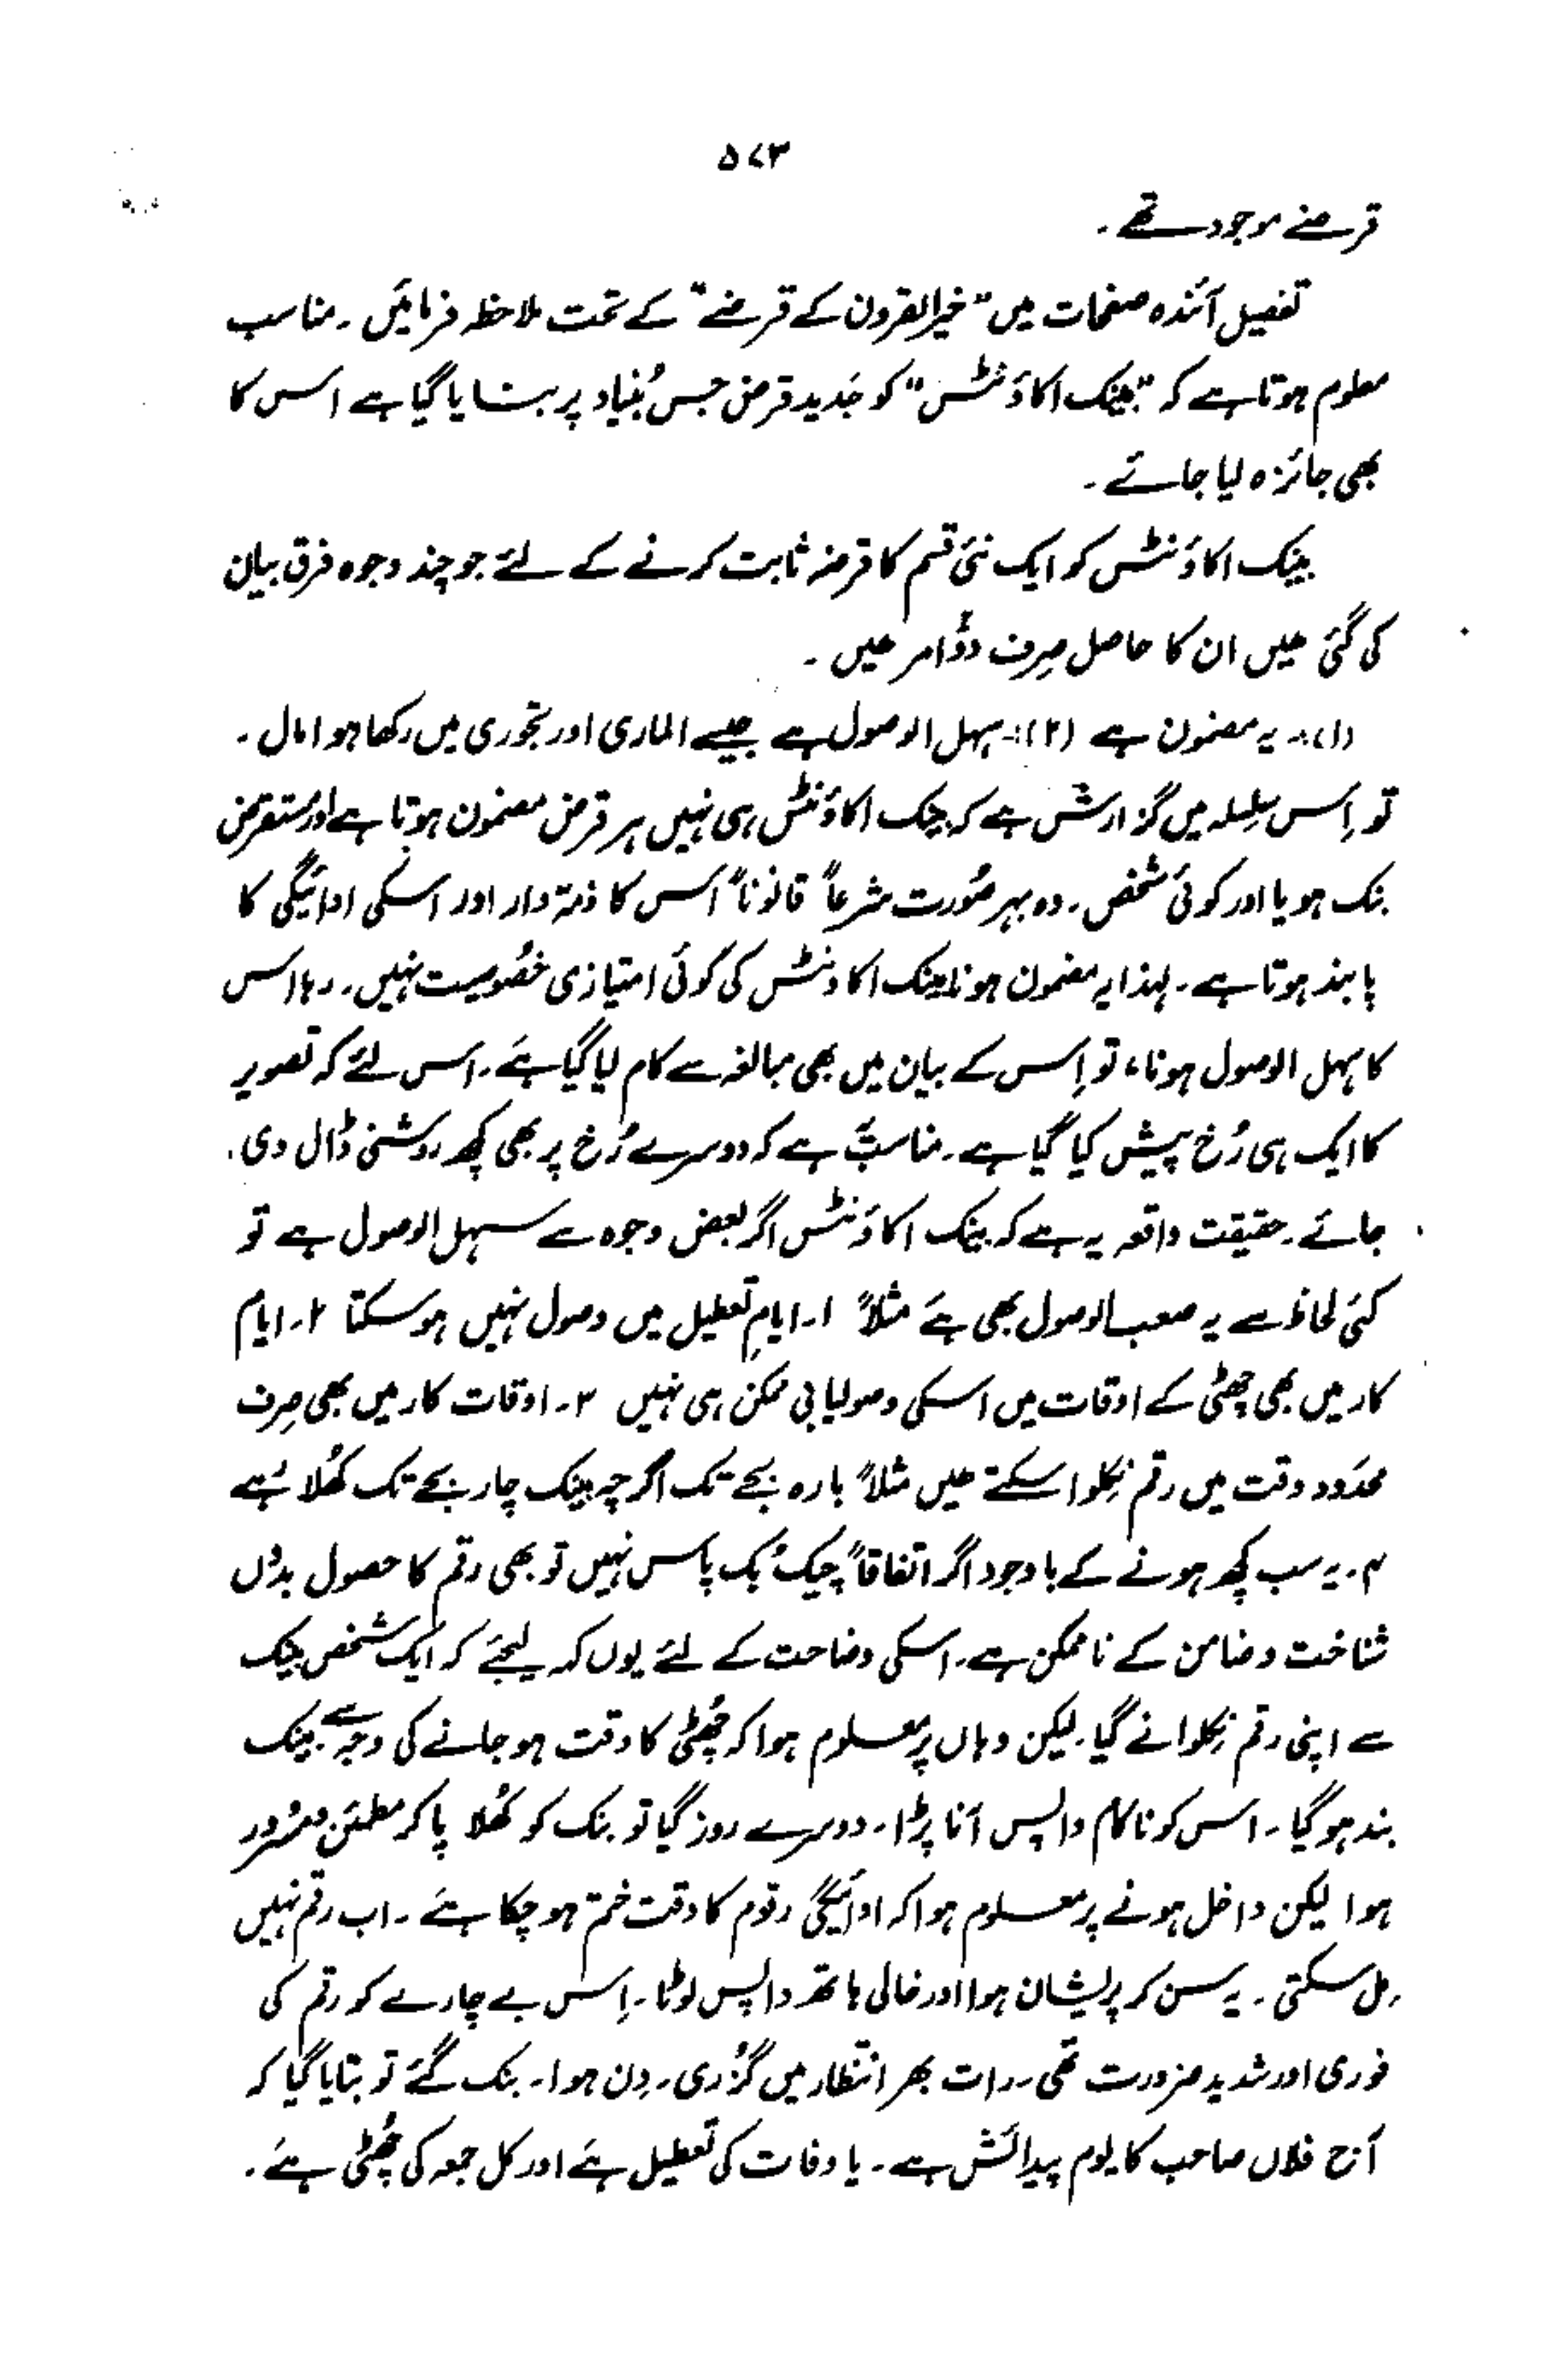 ۵۷۳
قرضے موجود تھے ۔
تفصیل آئندہ صفحات میں "خیرالقرون کے قرضے" کے تحت ملاحظہ فرمائیں ۔ مناسب
معلوم ہوتا ہے کہ "بینک اکاؤنٹس" کو جدید قرض جس بُنیاد پر بتایا گیا ہے اس کا
بھی جائزہ لیا جائے ۔
بینک اکاؤنٹس کو ایک نئی قسم کا قرضہ ثابت کرنے کے لئے جو چند وجوہ فرق بیان
کی گئی ھیں ان کا حاصل صِرف دوؔ امر ھیں ۔
(۱)؍ یہ مضمون ہے (۲)؍ سہل الوصول ہے جیسے الماری اور تجوری میں رکھا ہوا مال ۔
تو اِس سلسلہ میں گزارش ہے کہ بینک اکاؤنٹس ہی نہیں ہر قرض مضمون ہوتا ہے اور مستقرض
بنک ہو یا اور کوئی شخص ۔ وہ بہر صُورت شرعاً قانوناً اس کا ذمّہ دار اور اسکی ادائیگی کا
پابند ہوتا ہے ۔ لہٰذا یہ مضمون ہونا بینک اکاؤنٹس کی کوئی امتیازی خصُوصیت نہیں ۔ رہا اس
کا سہل الوصول ہونا، تو اِس کے بیان میں بھی مبالغہ سے کام لیا گیا ہے ۔ اس لئے کہ تصویر
کا ایک ہی رُخ پیش کیا گیا ہے ۔ مناسب ہے کہ دوسرے رُخ پر بھی کچھ روشنی ڈال دی
جائے ۔ حقیقت واقعہ یہ ہے کہ بینک اکاؤنٹس اگر بعض وجوہ سے سہل الوصول ہے تو
کئی لحاظ سے یہ صعب الوصول بھی ہے مثلاً ۱۔ ایامِ تعطیل میں وصول نہیں ہو سکتا ۲۔ ایام
کار میں بھی چھٹی کے اوقات میں اسکی وصولیابی ممکن ہی نہیں ۳۔ اوقات کار میں بھی صِرف
محدُود وقت میں رقم نِکلوا سکتے ھیں مثلاً بارہ بجے تک اگرچہ بینک چار بجے تک کھُلا رہے
۴۔ یہ سب کچھ ہونے کے باوجود اگر اتفاقاً چیک بُک پاس نہیں تو بھی رقم کا حصول بدوں
شناخت و ضامن کے ناممکن ہے ۔ اسکی وضاحت کے لئے یوں کہہ لیجئے کہ ایک شخص بینک
سے اپنی رقم نِکلوانے گیا ۔ لیکن وہاں پر معلوم ہوا کہ چُھٹی کا وقت ہو جانے کی وجہ سے بینک
بند ہو گیا ۔ اس کو ناکام واپس آنا پڑا ۔ دوسرے روز گیا تو بنک کو کھُلا پا کر مطمئن و مسرُور
ہوا لیکن داخل ہونے پر معلوم ہوا کہ ادائیگی رقوم کا وقت ختم ہو چکا ہے ۔ اب رقم نہیں
مِل سکتی ۔ یہ سن کر پریشان ہوا اور خالی ہاتھ واپس لوٹا ۔ اِس بے چارے کو رقم کی
فوری اور شدید ضرورت تھی ۔ رات بھر انتظار میں گزُری ۔ دِن ہوا ۔ بنک گئے تو بتایا گیا کہ
آج فلاں صاحب کا یوم پیدائش ہے ۔ یا وفات کی تعطیل ہے اور کل جمعہ کی چُھٹی ہے ۔